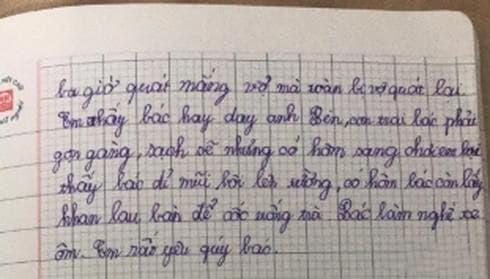 ba giờ quát mắng vợ mà toàn bị vợ quát lại.
Em thấy bác hay dạy anh Bền, con trai bác phải
gọn gàng, sạch sẽ nhưng có hôm sang chơi em lại
thấy bác dỉ mũi bôi lên tường, có hôm bác còn lấy
khan lau bàn để cốc uống trà. Bác làm nghề xe
ôm. Em rất yêu quý bác.